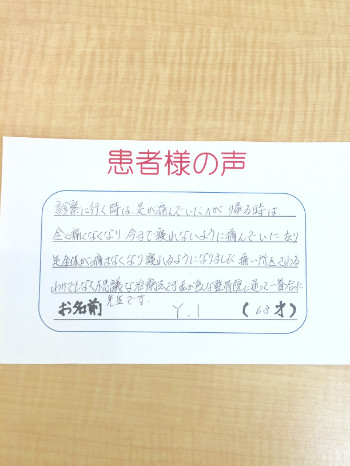 患者様の声
診察に行く時は、足が痛んでいたのが 帰る時は
全く痛くなくなり 今まで寝れないように痛んでいた 左り
足全体が痛さなくなり寝れるようになりました 痛い所をさわる
わけでもなく不思議な治療法ですが 色々な整骨院に通って一番
先生です。
お名前 Y.I (63才)